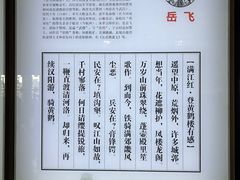 岳飞
【满江红·登黄鹤楼有感】
遥望中原,荒烟外、许多城郭
想当年、花遮柳护,凤楼龙阁
万岁山前珠翠绕,蓬壶殿里笙
歌作 到而今、铁骑满郊畿风
尘恶 兵安在?膏锋锷
民安在?填沟壑 叹江山如故,
千村寥落 何日请缨提锐旅,
一鞭直渡清河洛 却归来、再
续汉阳游,骑黄鹤